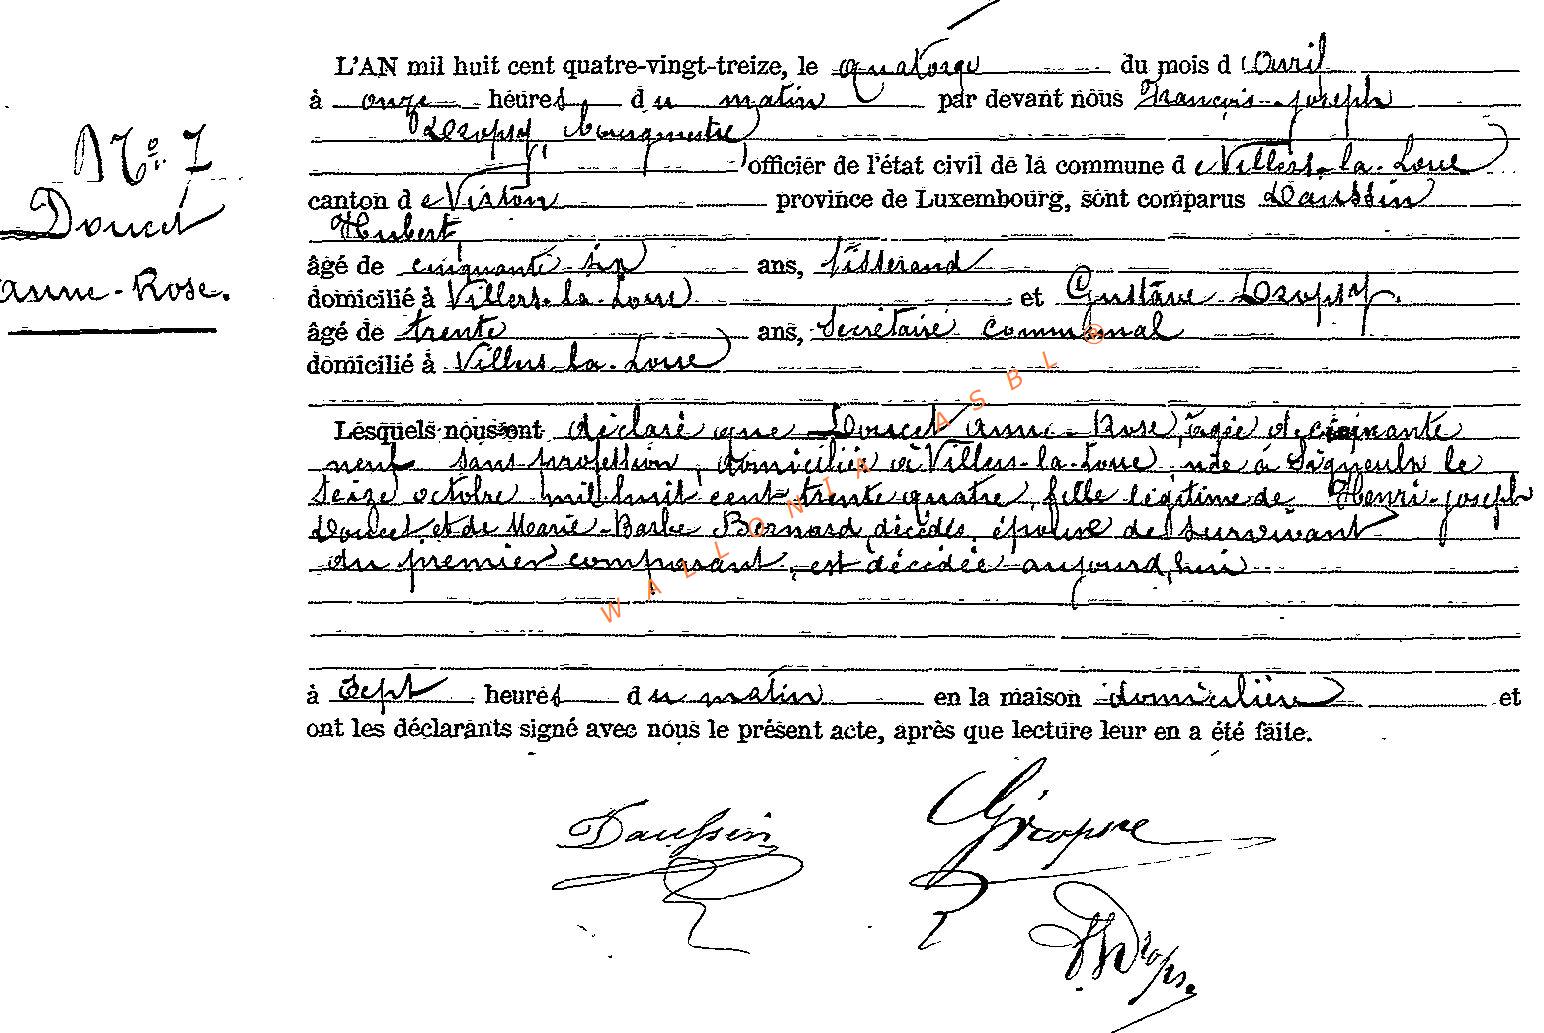 L'AN mil huit cent quatre-vingt-treize, le quatorze du mois d'Avril
à onze heures du matin par devant nous François-Joseph
Dropsy, bourgmestre
officier de l'état civil de la commune de Villers-la-Loue
canton de Virton province de Luxembourg, sont comparus Daussin
Hubert,
âgé de cinquante-six ans, tisserand
domicilié à Villers-la-Loue et Gustave Dropsy.
âgé de trente ans, Secrétaire communal
domicilié à Villers-la-Loue
N° 7
Doucet
anne-Rose.
Lesquels nous ont déclaré que Doucet anne-Rose, âgée de cinquante
neuf sans profession, domiciliée à Villers-la-Loue née à Signeulx le
seize octobre mil huit cent trente quatre, fille légitime de Henri-joseph
Doucet, et de Marie-Barbe Bernard, décédés, épouse de survivant
du premier comparant, est décédée aujourd'hui
à Sept heures du matin en la maison domicilière et
ont les déclarants signé avec nous le présent acte, après que lecture leur en a été faite.
Daussin
GDropsy
Dropsy
WALLONIA ASBL ®